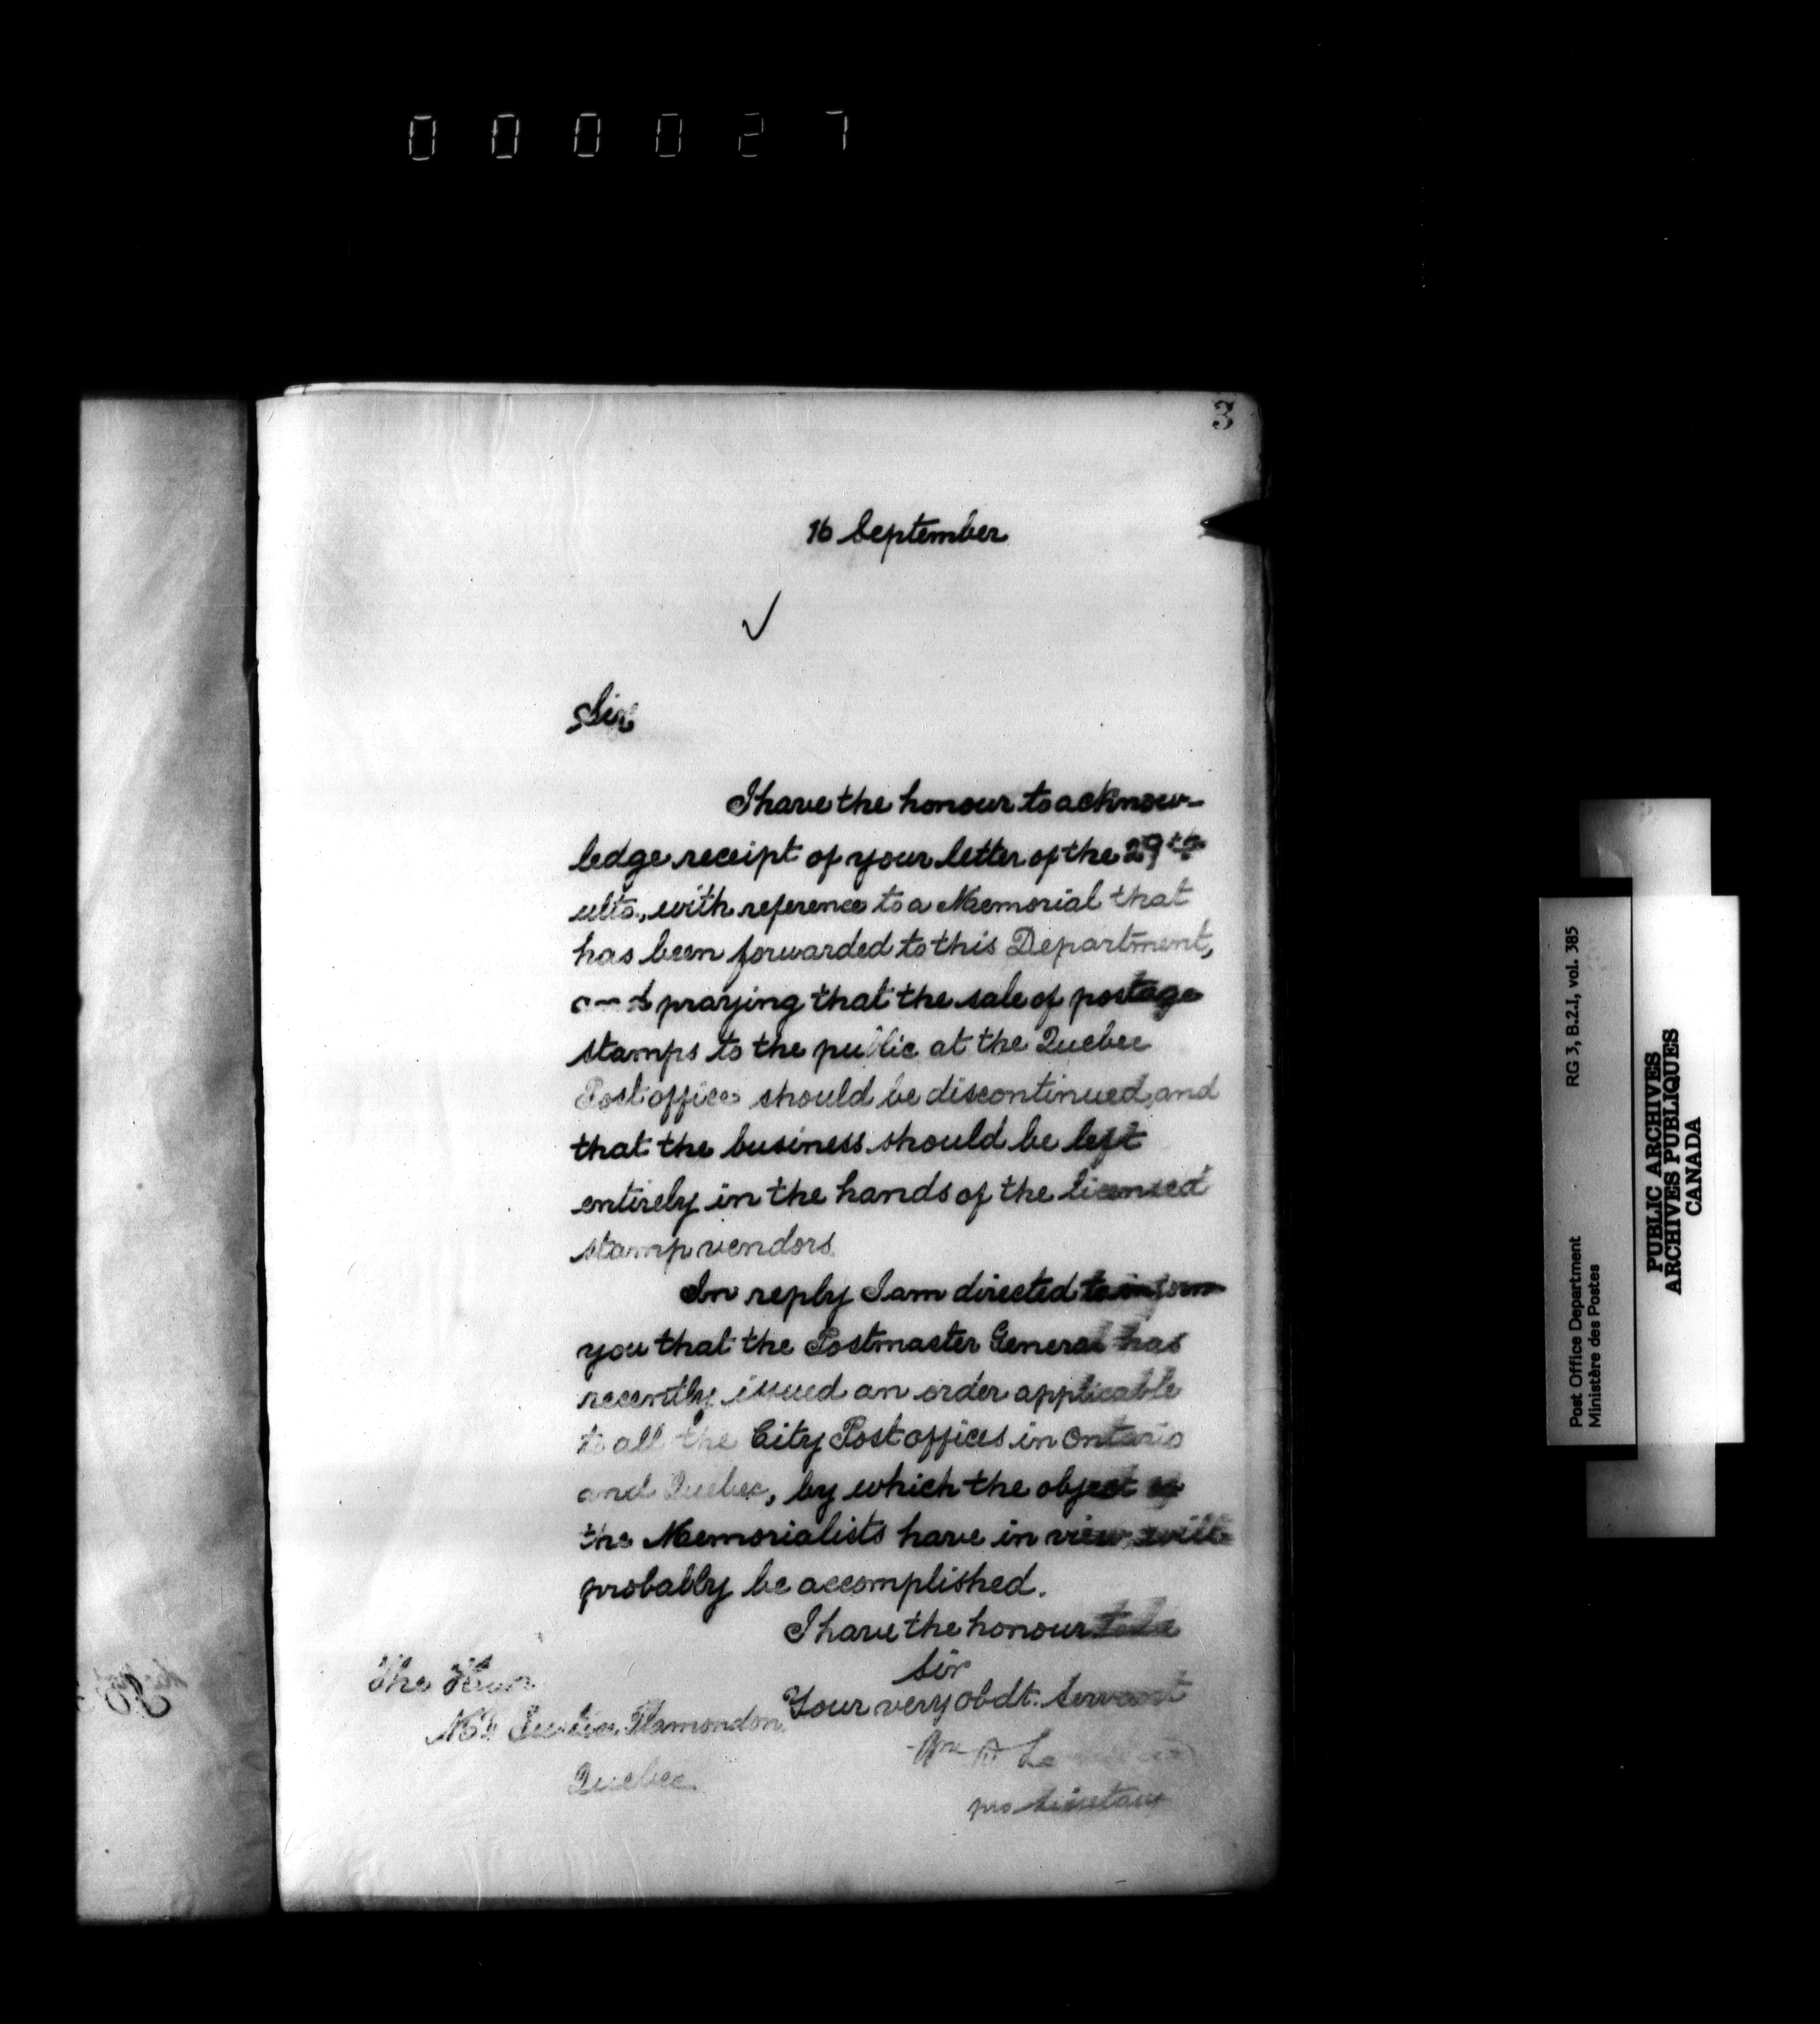 000027
3
16 September
✓
Sir
I have the honour to acknow-
ledge receipt of your letter of the 29th
ulto., with reference to a Memorial that
has been forwarded to this Department,
and praying that the sale of postage
stamps to the public at the Quebec
Post office should be discontinued, and
that the business should be left
entirely in the hands of the licensed
stamp vendors.
In reply I am directed to inform
you that the Postmaster General has
recently issued an order applicable
to all the City Post offices in Ontario
and Quebec, by which the object
the Memorialists have in view will
probably be accomplished.
I have the honour to be
Sir
Your very obdt. Servant
Wm
pro Secretary
The Hon
Plamondon
Quebec
Post Office Department RG 3, B.2.I, vol. 385
Ministère des Postes
PUBLIC ARCHIVES
ARCHIVES PUBLIQUES
CANADA